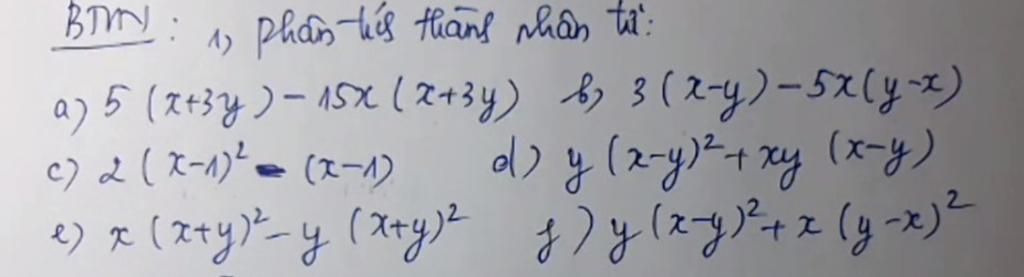 BTVN: 1, phân tích thành nhân tử:
a) 5 (x+3y) - 15x (x+3y) b, 3 (x-y) - 5x(y-x)
c) 2 (x-1)² - (x-1) d) y (x-y)² + xy (x-y)
e) x (x+y)² - y (x+y)² f) y (x-y)² + x (y-x)²